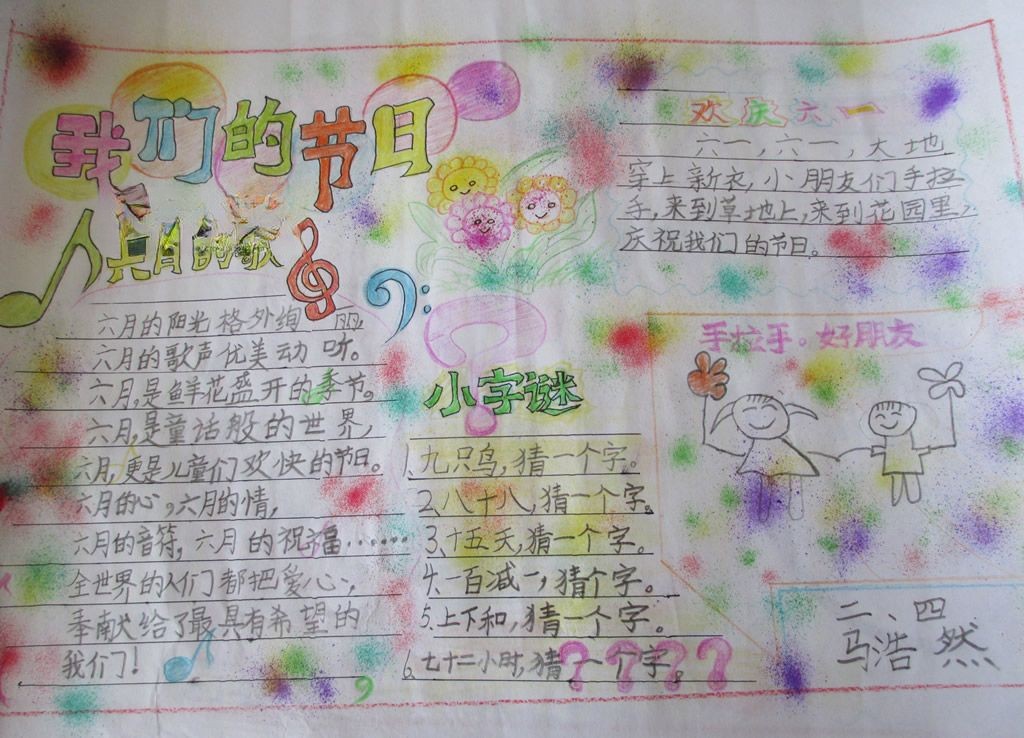 我们的节日
六月的歌
六月的阳光格外绚丽,
六月的歌声优美动听。
六月,是鲜花盛开的季节。
六月,是童话般的世界,
六月,更是儿童们欢快的节日。
六月的心,六月的情,
六月的音符,六月的祝福······
全世界的人们都把爱心,
奉献给了最具有希望的
我们!
小字谜
1、九只鸟,猜一个字。
2、八十八,猜一个字。
3、十五天,猜一个字。
4、一百减一,猜个字。
5、上下和,猜一个字。
6、七十二小时,猜一个字。
????
欢庆六一
六一,六一,大地
穿上新衣,小朋友们手拉
手,来到草地上,来到花园里,
庆祝我们的节日。
手拉手。好朋友
二、四
马浩然